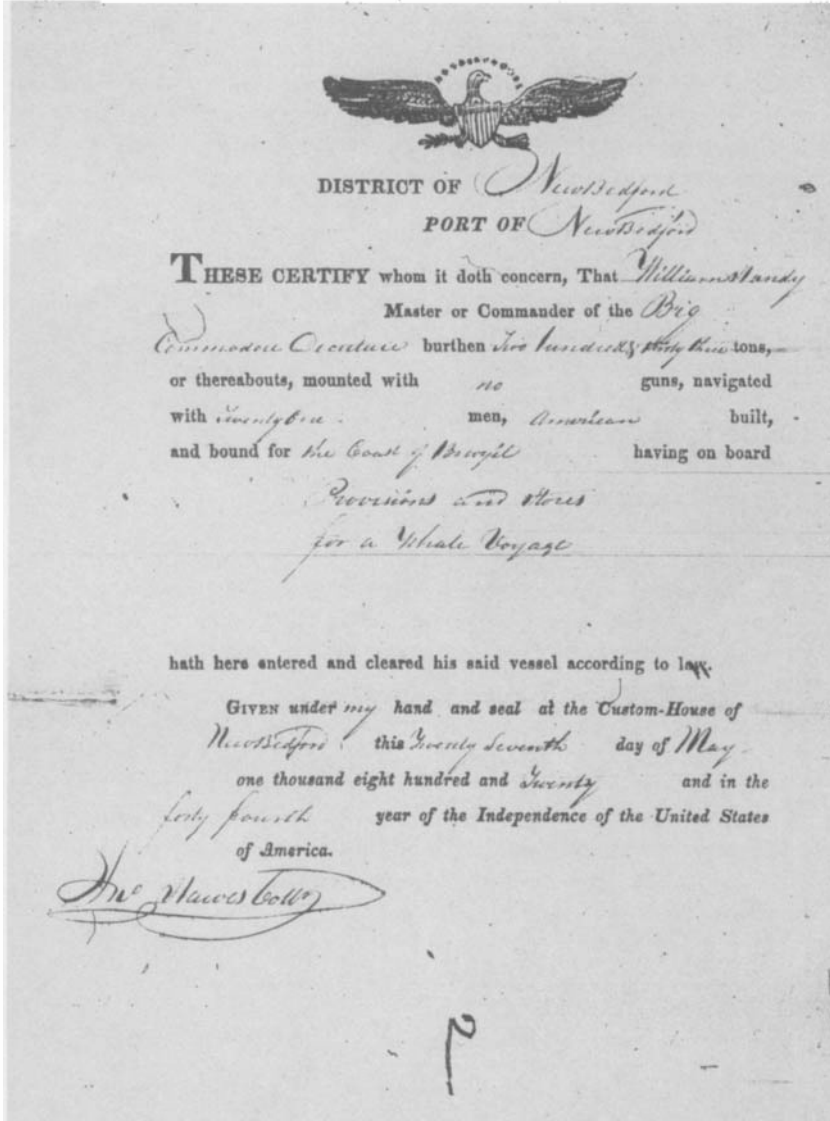 DISTRICT OF NewBedford
PORT OF NewBedford
THESE CERTIFY whom it doth concern, That William Handy
Master or Commander of the Brig
Commodore Decatur burthen Two hundred & thirty three tons,
or thereabouts, mounted with no guns, navigated
with Twenty One men, American built,
and bound for the Coast of Brazil having on board
Provisions and Stores
for a Whale Voyage
hath here entered and cleared his said vessel according to law.
GIVEN under my hand and seal at the Custom-House of
NewBedford this Twenty Seventh day of May
one thousand eight hundred and Twenty and in the
forty fourth year of the Independence of the United States
of America.
Jno Hawes Collr
2